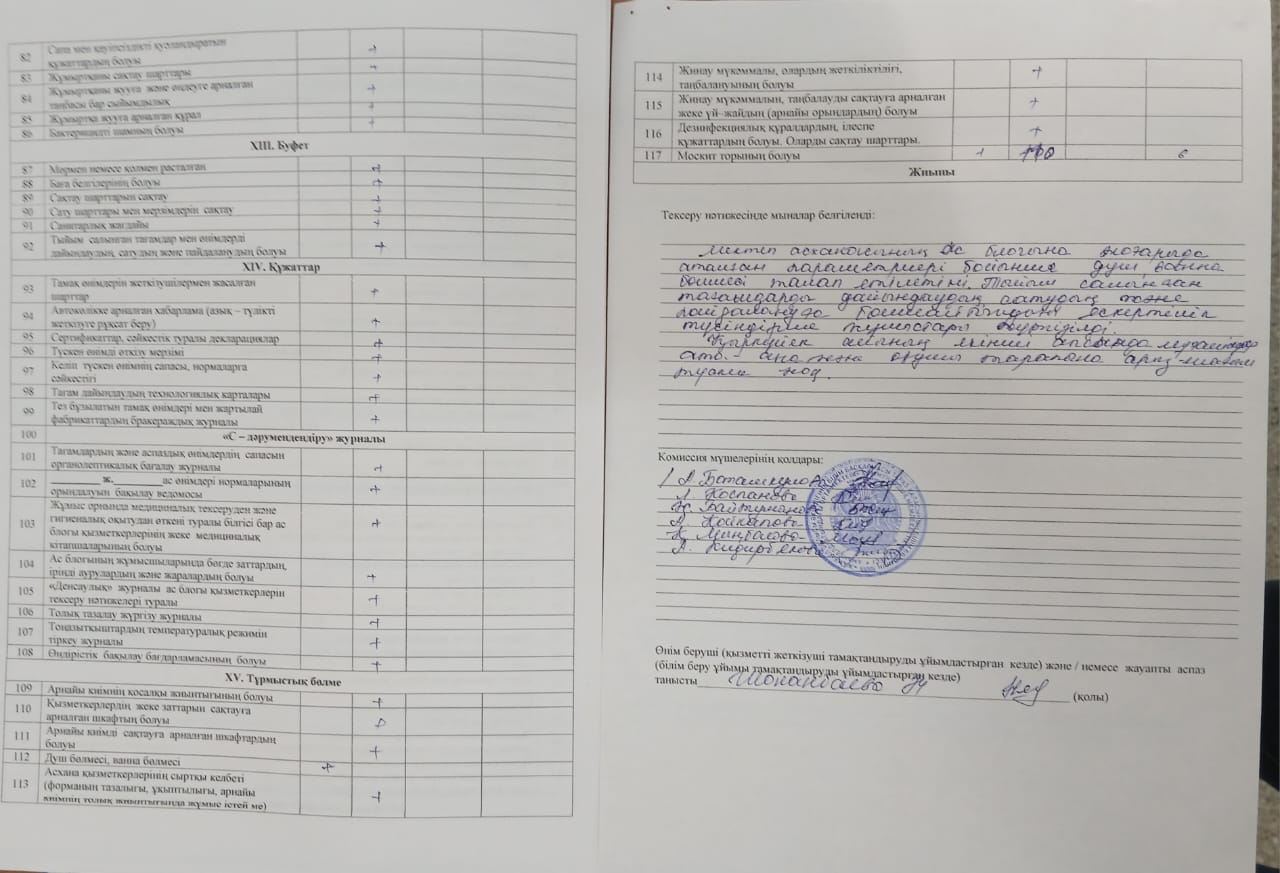 82 Сапа мен қауіпсіздікті куәландыратын
құжаттардың болуы +
83 Жұмыртқаны сақтау шарттары +
84 Жұмыртқаны жууға және өңдеуге арналған
таңбасы бар сыйымдылық +
85 Жұмыртқа жууға арналған құрал +
86 Бактерицидті шамның болуы +
XIII. Буфет
87 Мөрмен немесе қолмен расталған +
88 Баға белгілерінің болуы +
89 Сақтау шарттарын сақтау +
90 Сату шарттары мен мерзімдерін сақтау +
91 Санитарлық жағдайы +
92 Тыйым салынған тағамдар мен өнімдерді
дайындаудың, сатудың және пайдаланудың болуы +
XIV. Құжаттар
93 Тамақ өнімдерін жеткізушілермен жасалған
шарттар +
94 Автокөлікке арналған хабарлама (азық – түлікті
жеткізуге рұқсат беру) +
95 Сертификаттар, сәйкестік туралы декларациялар +
96 Түскен өнімді өткізу мерзімі +
97 Келіп түскен өнімнің сапасы, нормаларға
сәйкестігі +
98 Тағам дайындаудың технологиялық карталары +
99 Тез бұзылатын тамақ өнімдері мен жартылай
фабрикаттардың бракераждық журналы +
100 «С – дәрумендендіру» журналы
101 Тағамдардың және аспаздық өнімдердің сапасын
органолептикалық бағалау журналы +
102 _________ ж._________ас өнімдері нормаларының
орындалуын бақылау ведомосы +
103 Жұмыс орнында медициналық тексеруден және
гигиеналық оқытудан өткені туралы білгісі бар ас
блогы қызметкерлерінің жеке медициналық
кітапшаларының болуы +
104 Ас блогының жұмысшыларында бөгде заттардың,
іріңді аурулардың және жаралардың болуы +
105 «Денсаулық» журналы ас блогы қызметкерлерін
тексеру нәтижелері туралы +
106 Толық тазалау жүргізу журналы +
107 Тоңазытқыштардың температуралық режимін
тіркеу журналы +
108 Өндірістік бақылау бағдарламасының болуы +
XV. Тұрмыстық бөлме
109 Арнайы киімнің қосалқы жиынтығының болуы +
110 Қызметкерлердің жеке заттарын сақтауға
арналған шкафтың болуы
111 Арнайы киімді сақтауға арналған шкафтардың
болуы +
112 Душ бөлмесі, ванна бөлмесі +
113 Асхана қызметкерлерінің сыртқы келбеті
(форманың тазалығы, ұқыптылығы, арнайы
киімнің толық жиынтығында жұмыс істей ме) +
114 Жинау мүкәммалы, олардың жеткіліктілігі,
таңбалануының болуы +
115 Жинау мүкәммалын, таңбалауды сақтауға арналған
жеке үй–жайдың (арнайы орындардың) болуы +
116 Дезинфекциялық құралдардың, ілеспе
құжаттардың болуы. Оларды сақтау шарттары. +
117 Москит торының болуы + 110 6
Жиыны
Тексеру нәтижесінде мыналар белгіленді:
Мектеп асханасының ас блогына жоғарыда
аталған параметрлері бойынша душ ванна
бөлмесі талап етілетіні. Тыйым салынған
тағамдарды дайындаудың сатудың және
пайдалануға болмайтындығы ескертіліп
түсіндірме жұмыстары жүргізілді.
Қыркүйек айының екінші аптасында мұғалімдер
ата - ана және оқушы тарапынан арыз-шағым
түскен жоқ.
Комиссия мүшелерінің қолдары:
А. Қоспанова
Н. Байтұрпанова
Қ. Мыңбасова
Өнім беруші (қызметті жеткізуші тамақтандыруды ұйымдастырған кезде) және / немесе жауапты аспаз
(білім беру ұйымы тамақтандыруды ұйымдастырған кезде)
танысты (қолы)